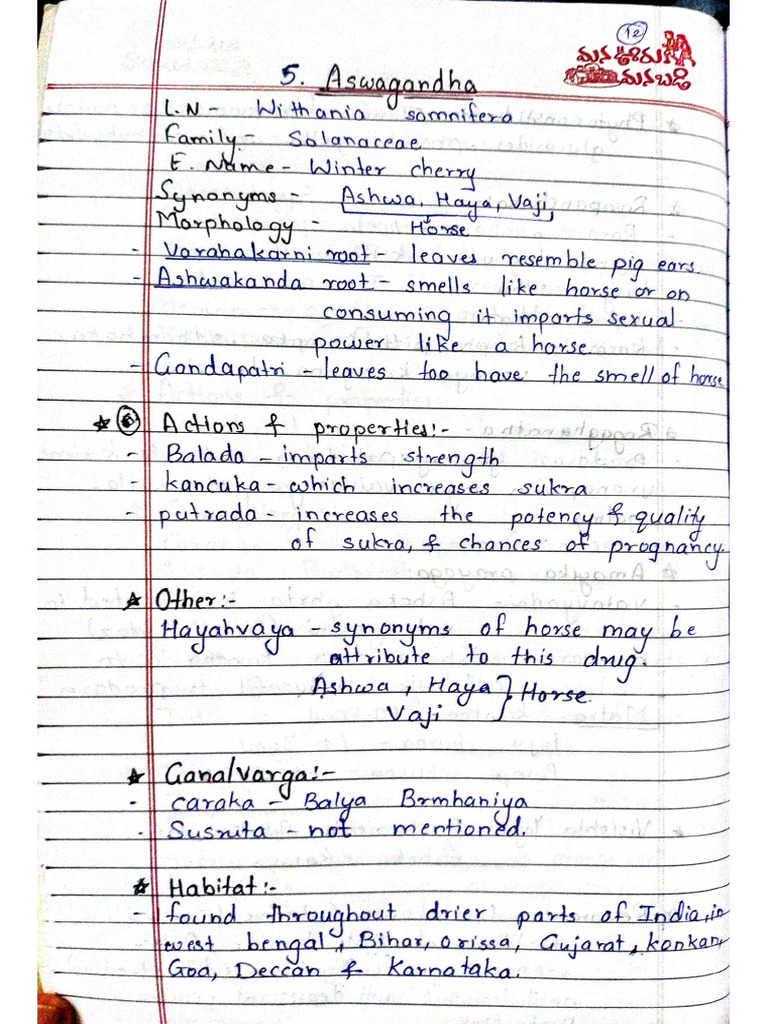 12
మన ఊరు
మనబడి
5. Aswagandha
L.N - Withania somnifera
Family - Solanaceae
E. Name - Winter cherry
Synonyms - Ashwa, Haya, Vaji,
Morphology - Horse
- Varahakarni root - leaves resemble pig ears.
- Ashwakanda root - smells like horse or on
consuming it imparts sexual
power like a horse.
- Gandapatri - leaves too have the smell of horse
* Actions & properties:-
- Balada - imparts strength
- kancuka - which increases sukra
- putrada - increases the potency & quality
of sukra, & chances of prognancy.
* Other:-
Hayahvaya - synonyms of horse may be
attribute to this drug.
Ashwa, Haya } Horse.
Vaji
* Gana/varga:-
- Caraka - Balya Brmhaniya
- Susruta - not mentioned.
* Habitat:-
- found throughout drier parts of India, in
west bengal, Bihar, Orissa, Gujarat, konkan,
Goa, Deccan & Karnataka.